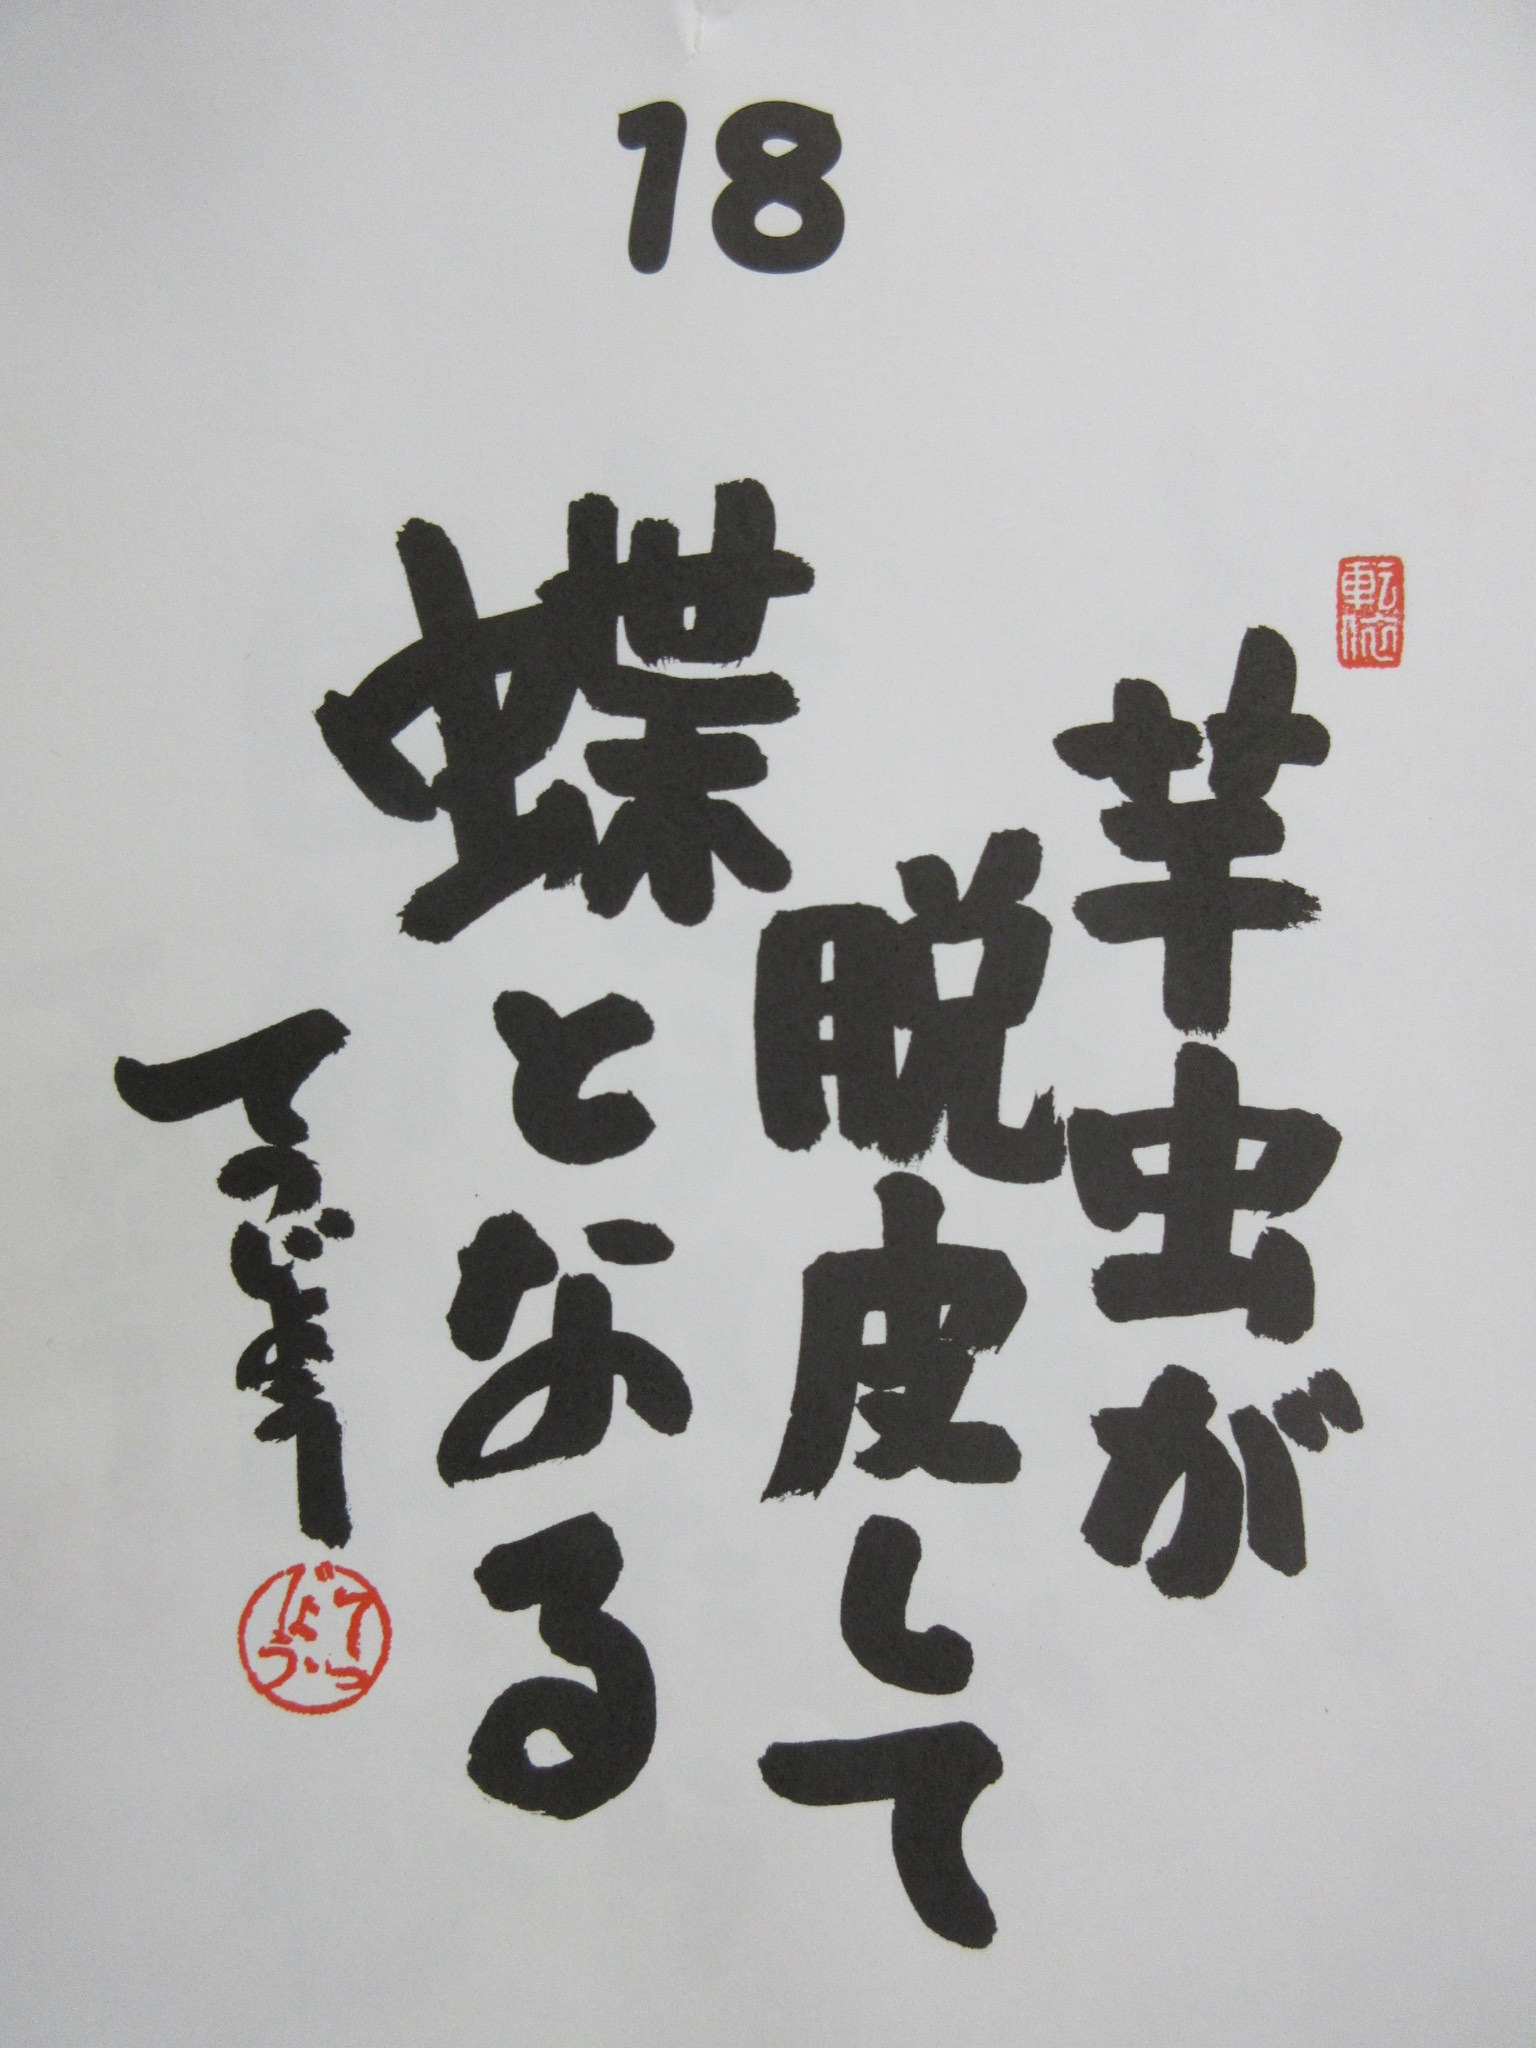 18
転依
芋虫が
脱皮して
蝶となる
てつじょう
てつ
じょう